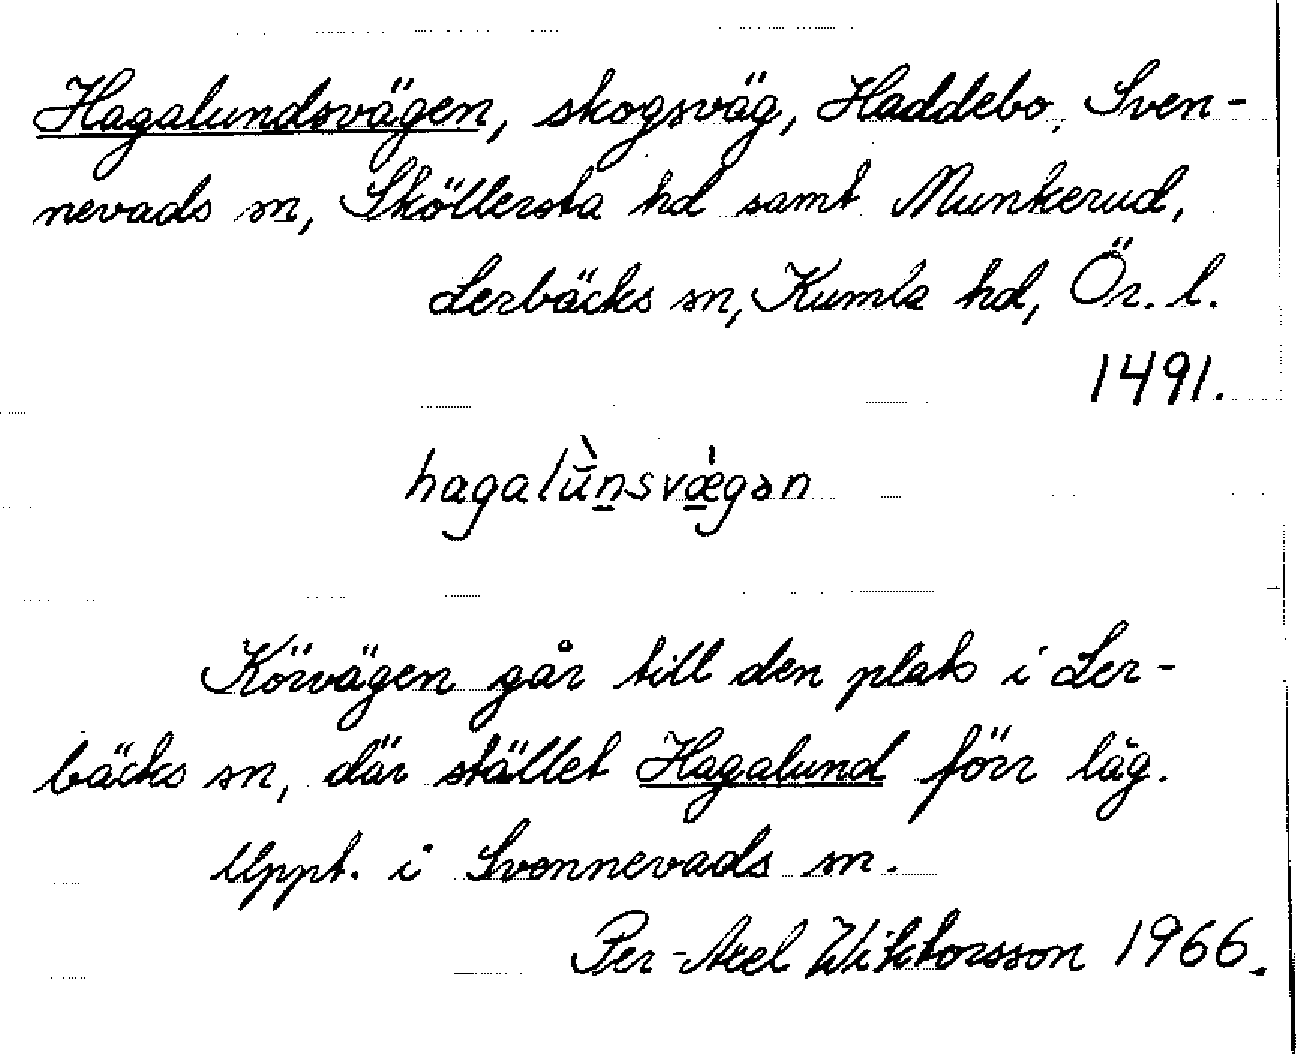 Hagalundsvägen, skogsväg, Haddebo, Sven-
nevads sn, Sköllersta hd samt Munkerud,
Lerbäcks sn, Kumla hd, Ör. l.
1491.
hagalū̠̀nsvæ̠̀gən
Körvägen går till den plats i Ler-
bäcks sn, där stället Hagalund förr låg.
Uppt. i Svennevads sn.
Per-Axel Wiktorsson 1966.